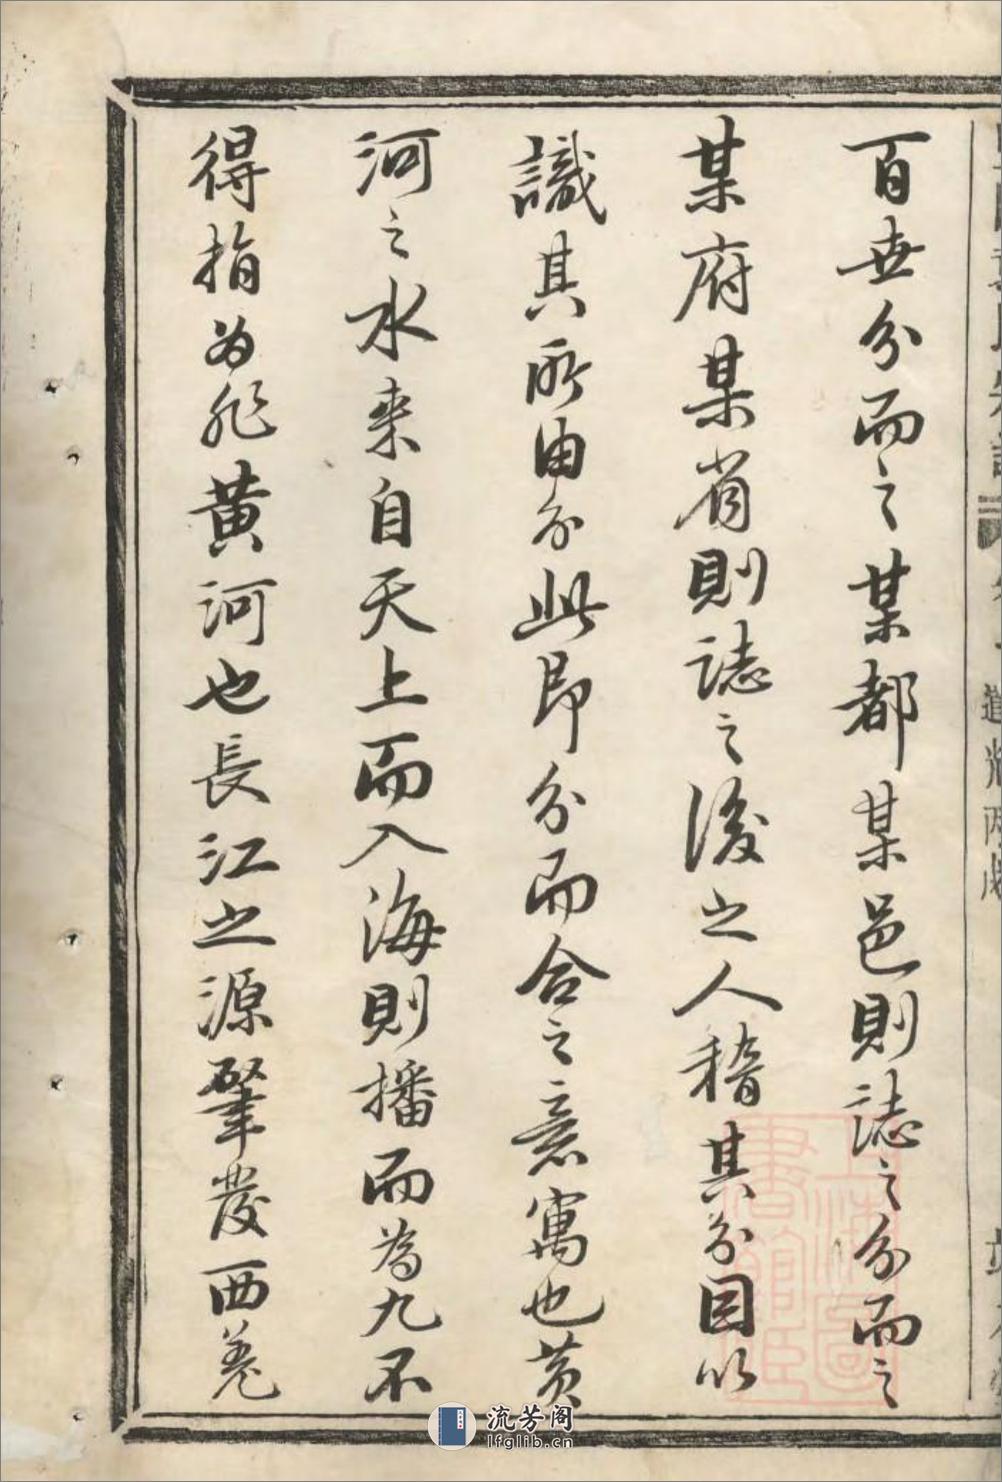 百世分而之某都某邑則誌之分而之
某府某省則誌之後之人稽其分因以
識其所由分此即分而合之意寓也黄
河之水来自天上而入海則播而為九不
得指为非黄河也長江之源肇發西羌
上海圖
書館藏
流芳阁
lfglib.cn